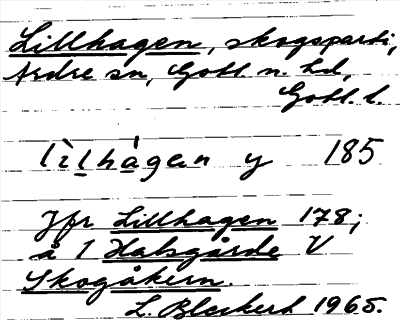 Lillhagen, skogsparti,
Ardre sn, Gotl. n. hd,
Gotl. l.
lìlhàgen y 185
Jfr Lillhagen 178;
å 1 Halsgårde V
Skogåkern.
L. Bleckert 1965.